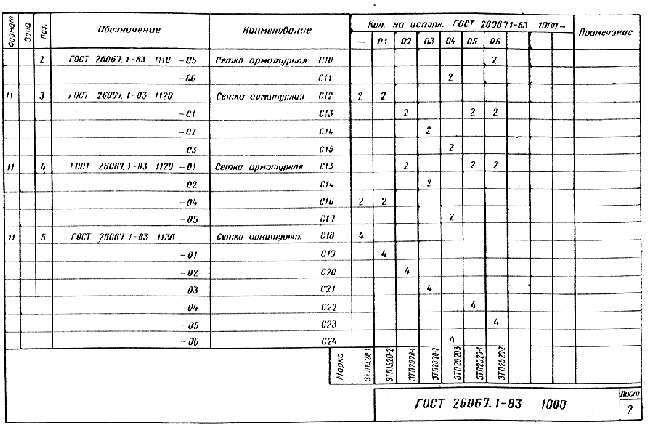 Формат Зона Поз. Обозначение Наименование Кол. на исполн. ГОСТ 26067.1-83 1000 — Примечание
— 01 02 03 04 05 06
2 ГОСТ 26067.1-83 1110 -05 Сетка арматурная С10 2
-06 С11 2
11 3 ГОСТ 26067.1-83 1120 Сетка арматурная С12 2 2
-01 С13 2 2 2
С14 2
С15 2
11 4 ГОСТ 26067.1-83 1120 -01 Сетка арматурная С13 2 2 2
02 С14 2
-04 С16 2 2
-05 С17 2
11 5 ГОСТ 26067.1-83 1130 Сетка арматурная С18 4
-01 С19 4
-02 С20 4
03 С21 4
04 С22 4
05 С23 4
-06 С24 4
Марка
ГОСТ 26067.1-83 1000
Лист
2